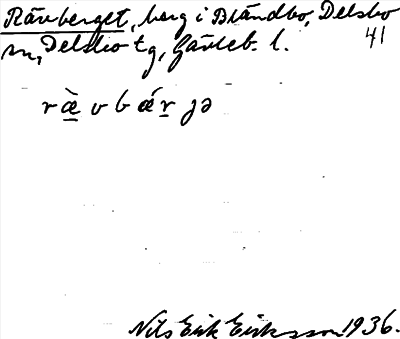 Rävberget, berg i Brändbo, Delsbo
sn, Delsbo tg, Gävleb. l. 41
r æ̀ v b ǽ r jə
Nils Erik Eriksson 1936.